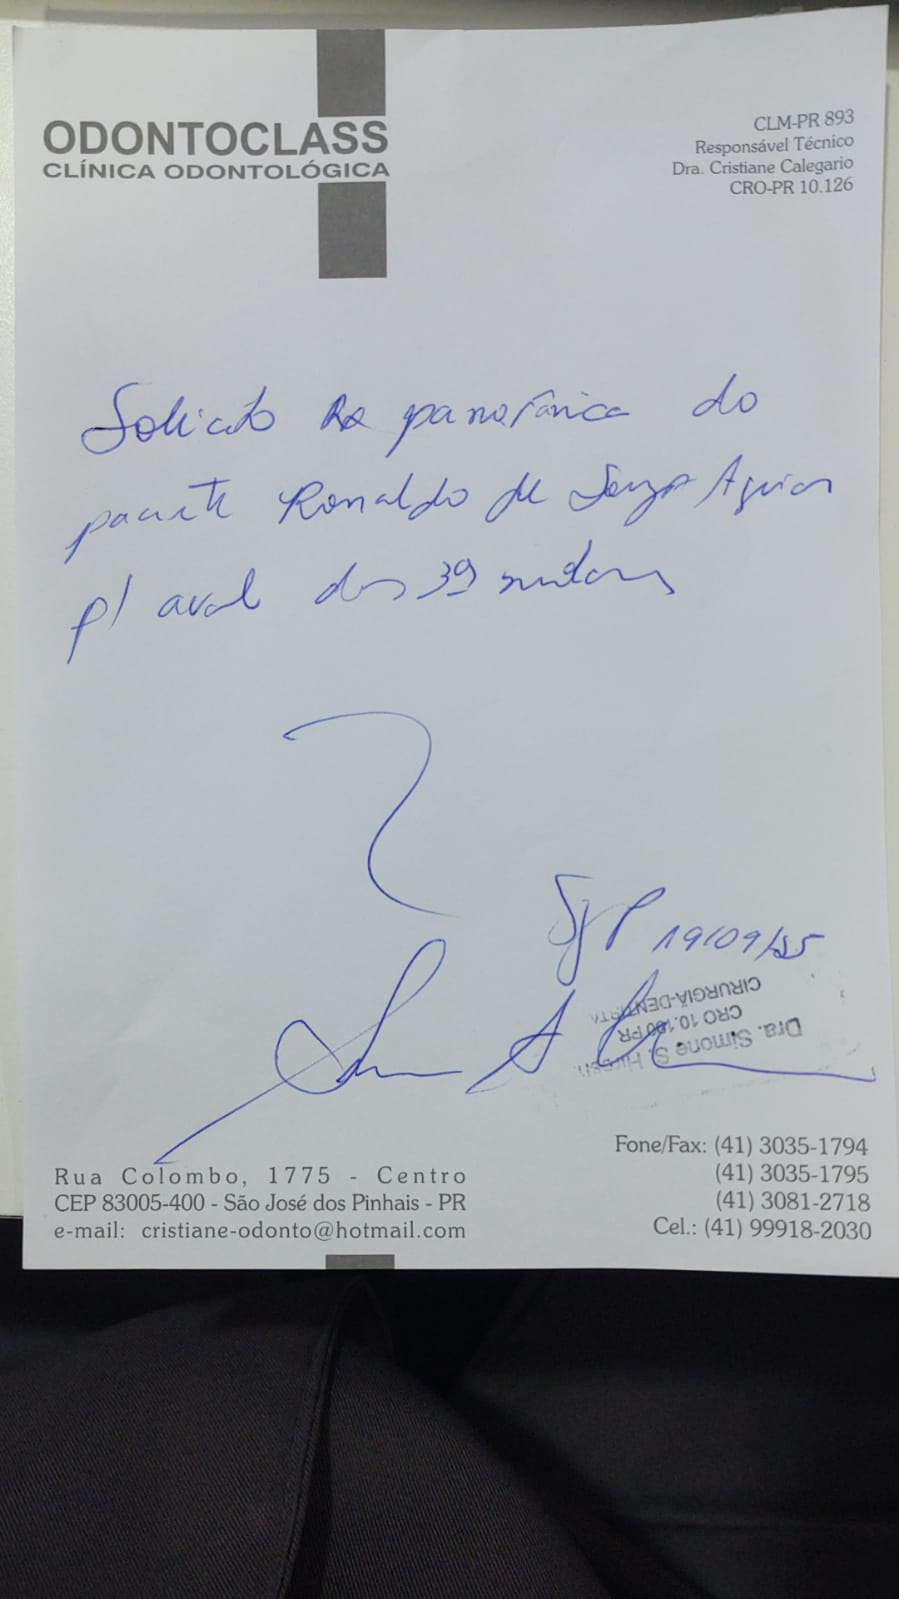 ODONTOCLASS
CLÍNICA ODONTOLÓGICA
CLM-PR 893
Responsável Técnico
Dra. Cristiane Calegario
CRO-PR 10.126
Solicito Rx panorâmica do
paciente Ronaldo de Souza Aguiar
p/ aval dos 3os molares
SJP 19/09/25
Dra. Simone S.
CRO
CIRURGIÃ-DENTISTA
Rua Colombo, 1775 - Centro
CEP 83005-400 - São José dos Pinhais - PR
e-mail: cristiane-odonto@hotmail.com
Fone/Fax: (41) 3035-1794
(41) 3035-1795
(41) 3081-2718
Cel.: (41) 99918-2030